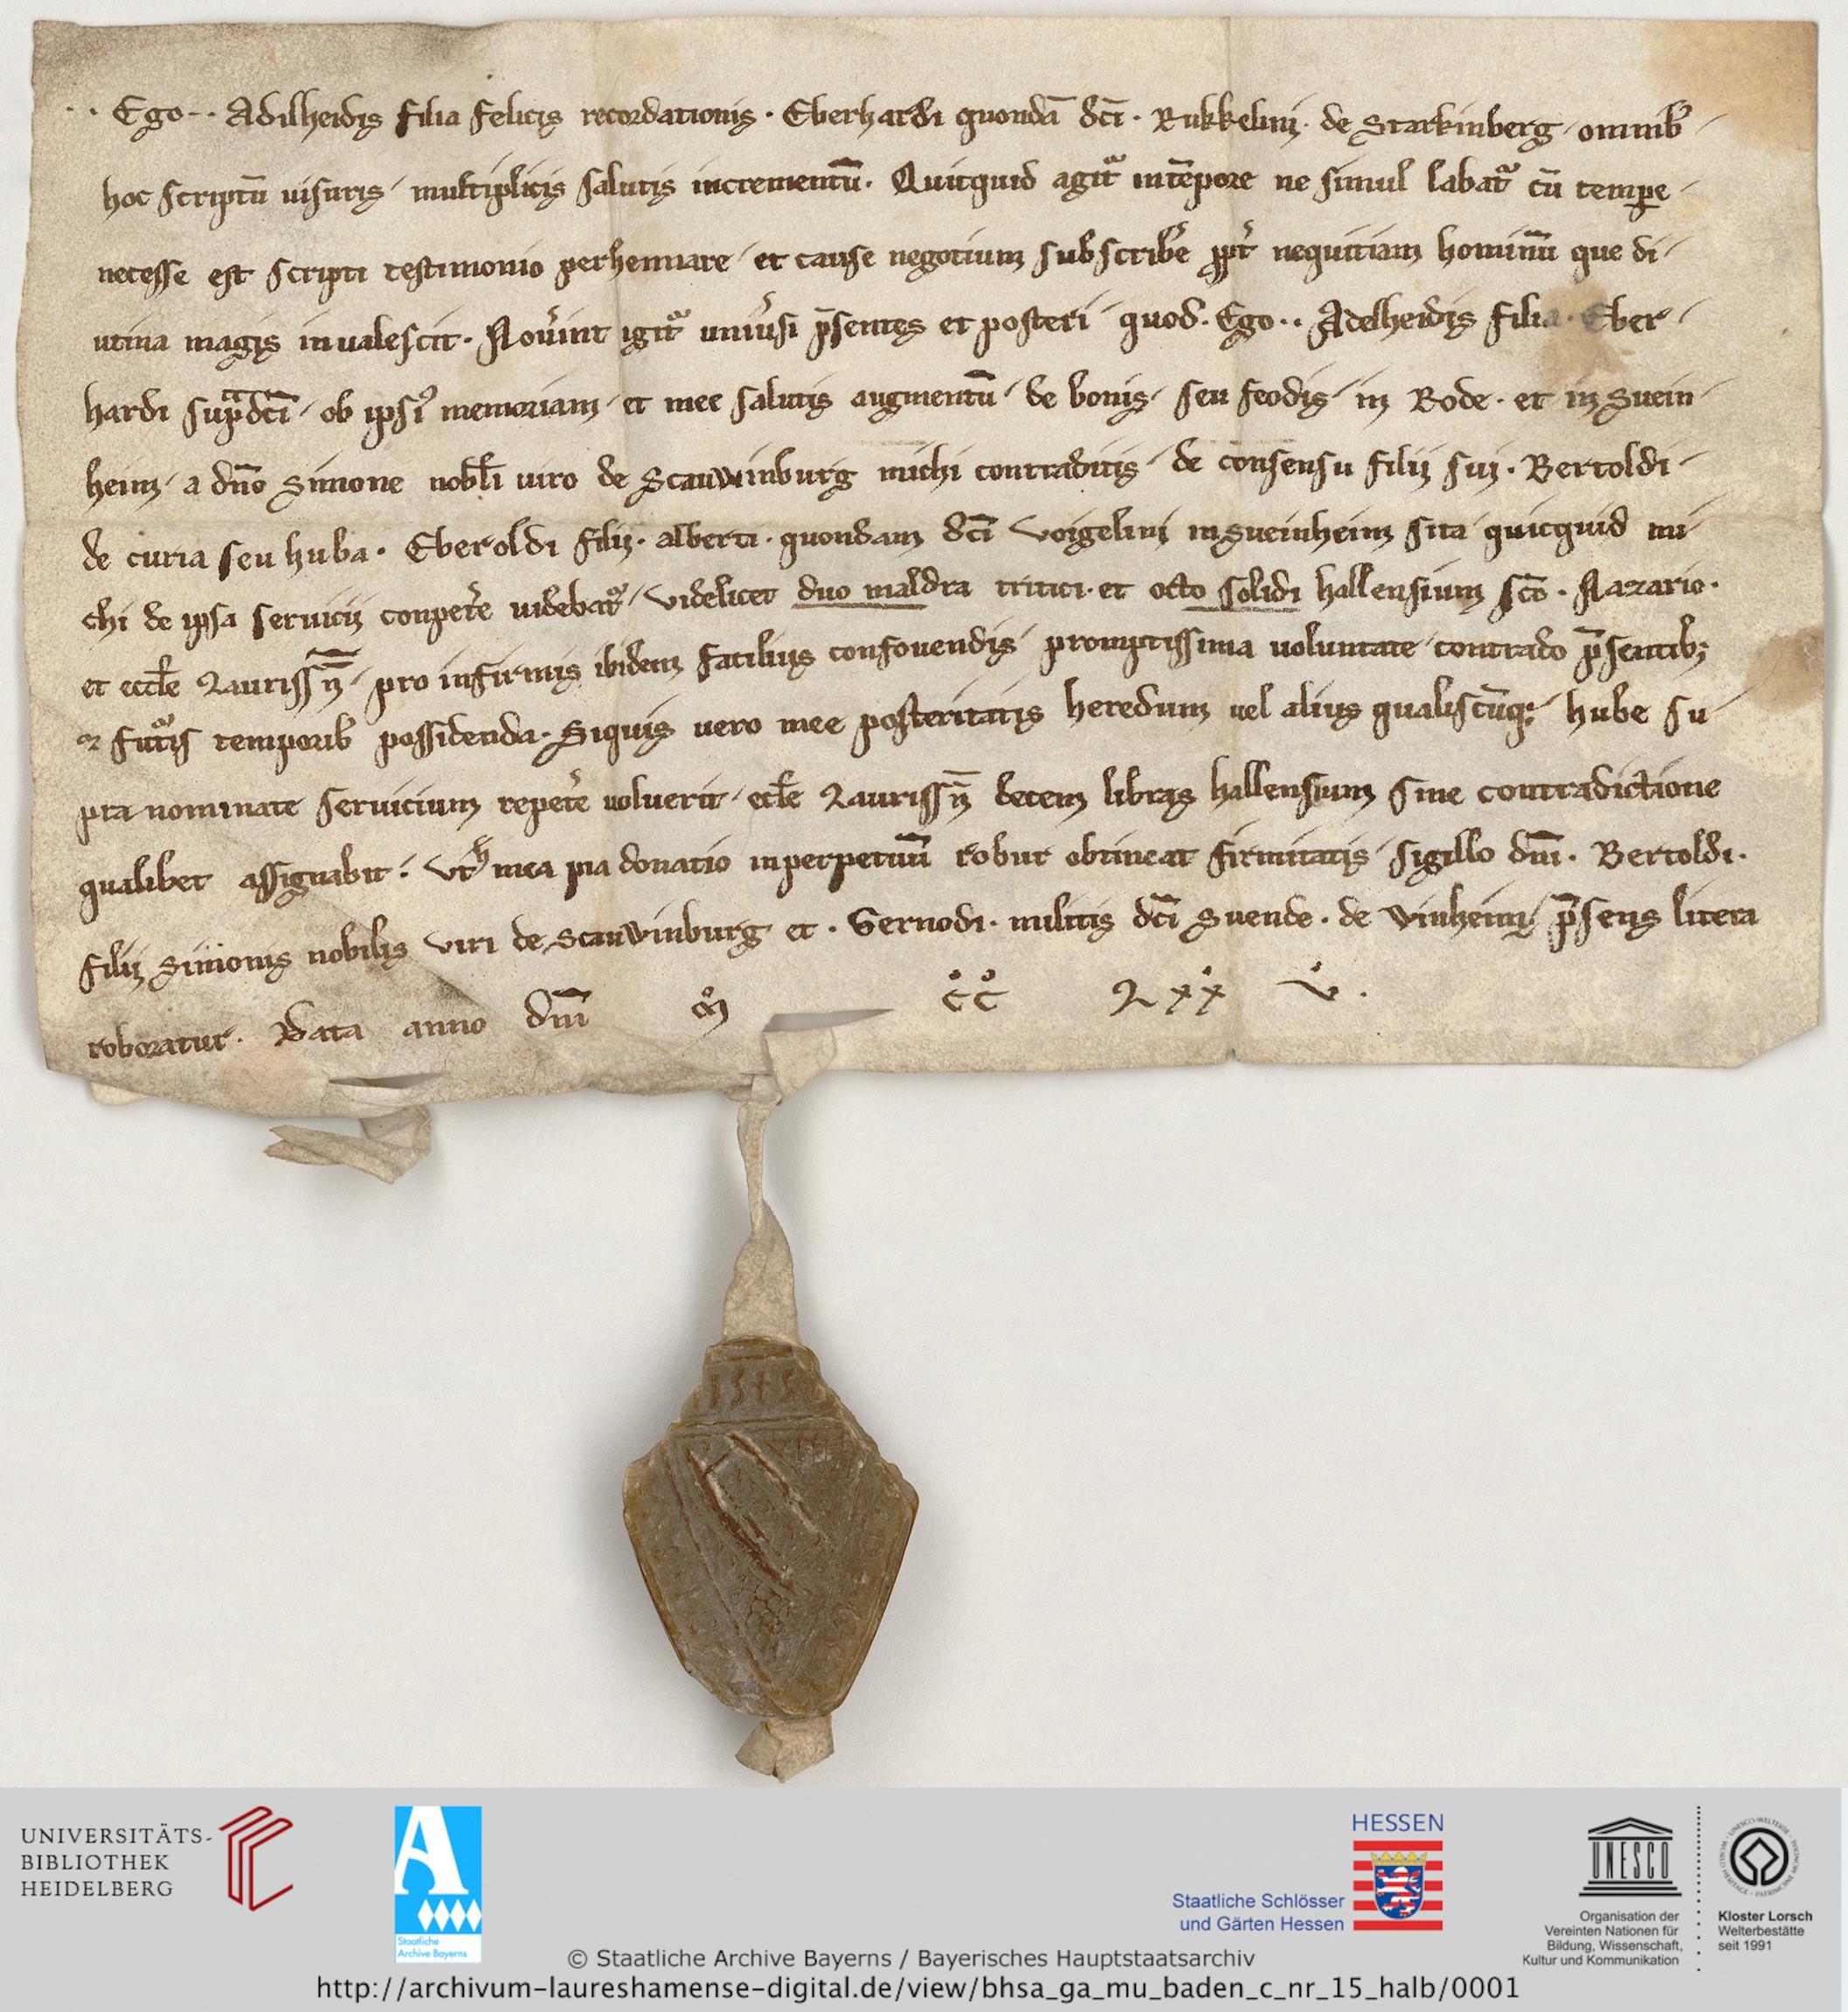 . . Ego . . Adilheidis filia felicis recordationis . Eberhardi quondā dc̄i . Rukkelini . de Starkinberg / omnib /
hoc scriptū uisuris / multiplicis salutis incrementū . Quicquid agit᷑ intēpore ne simul labat᷑ cū tempe /
necesse est scripti testimonio perhennare / et cause negotium subscribe᷑ ꝓpt᷑ nequitiam hominū que di /
utina magis inualescit . Nou᷑int igit᷑ uniu᷑si p̄sentes et posteri / quod . Ego . . Adelheidis filia . Eber /
hardi sup̄dc̄i / ob ipsi᷒ memoriam / et mee salutis augmentū / de bonis / seu feodis / in Rode . et in Suein /
heim / a dn̄o Simone nobl̄i uiro de Scauwinburg michi contraditis / de consensu filii sui . Bertoldi /
de curia seu huba . Eberoldi filii . alberti . quondam dc̄i Voigelini in Sueinheim sita / quicquid mi /
chi de ipsa seruicii conpete᷑ uidebat᷑ / videlicet duo maldra tritici . et octo solidi hallensium sc̄o . Nazario .
et eccl̄e Laurissn̄ / pro infirmis ibidem facilius confouendis / promptissima uoluntate / contrado p̄sentibꝫ
et fut᷑is temporib possidenda . Siquis uero mee posteritatis heredum uel alius qualiscūqꝫ / hube su /
pra nominate seruicium repete᷑ uoluerit / eccl̄e Laurissn̄ decem libras hallensium sine contradictione
qualibet assignabit . vt h mea pia donatio inperpetuū robur obtineat firmitatis / sigillo dn̄i . Bertoldi .
filii Simonis nobilis viri de Scauwinburg et . Gernodi . militis dc̄i Suende . de Winheim / p̄sens litera
roboratur . Data anno dn̄i M° C°C° LXX° V° .
1545
UNIVERSITÄTS-
BIBLIOTHEK
HEIDELBERG
Staatliche
Archive Bayerns
HESSEN
Staatliche Schlösser
und Gärten Hessen
UNESCO
Organisation der
Vereinten Nationen für
Bildung, Wissenschaft,
Kultur und Kommunikation
Kloster Lorsch
Welterbestätte
seit 1991
© Staatliche Archive Bayerns / Bayerisches Hauptstaatsarchiv
http://archivum-laureshamense-digital.de/view/bhsa_ga_mu_baden_c_nr_15_halb/0001